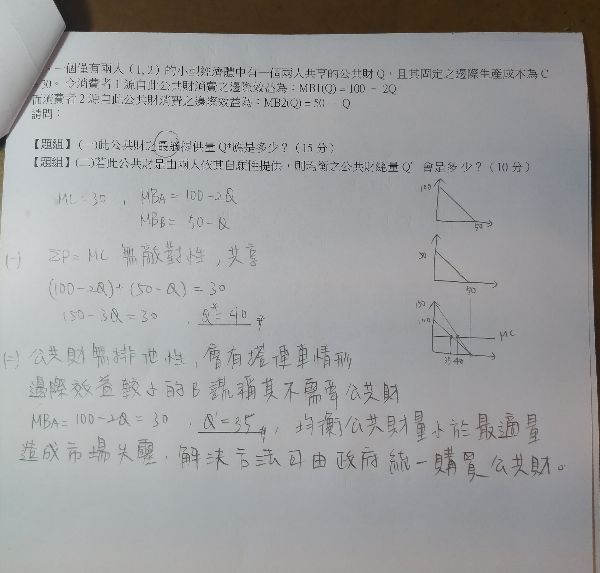 一個僅有兩人(1, 2)的小型經濟體中有一個兩人共享的公共財 Q，且其固定之邊際生產成本為 C
30。今消費者 1 源自此公共財消費之邊際效益為：MB1(Q) = 100 - 2Q
而消費者 2 源自此公共財消費之邊際效益為：MB2(Q) = 50 - Q
請問：
【題組】(一)此公共財之最適提供量 Q*應是多少？(15 分)
【題組】(二)若此公共財是由兩人依其自願性提供，則均衡之公共財總量 Q' 會是多少？(10 分)
MC=30 , MBA = 100-2Q
MBB = 50-Q
(一) ΣP = MC 無敵對性, 共享
(100-2Q)+(50-Q) = 30
150-3Q = 30 , Q* = 40 #
(二) 公共財無排他性, 會有搭便車情形
邊際效益較小的B謊稱其不需要公共財
MBA = 100-2Q = 30 , Q' = 35 #, 均衡公共財量小於最適量
造成市場失靈, 解決方法可由政府統一購買公共財。
100
50
50
50
150
100
MC
35 40